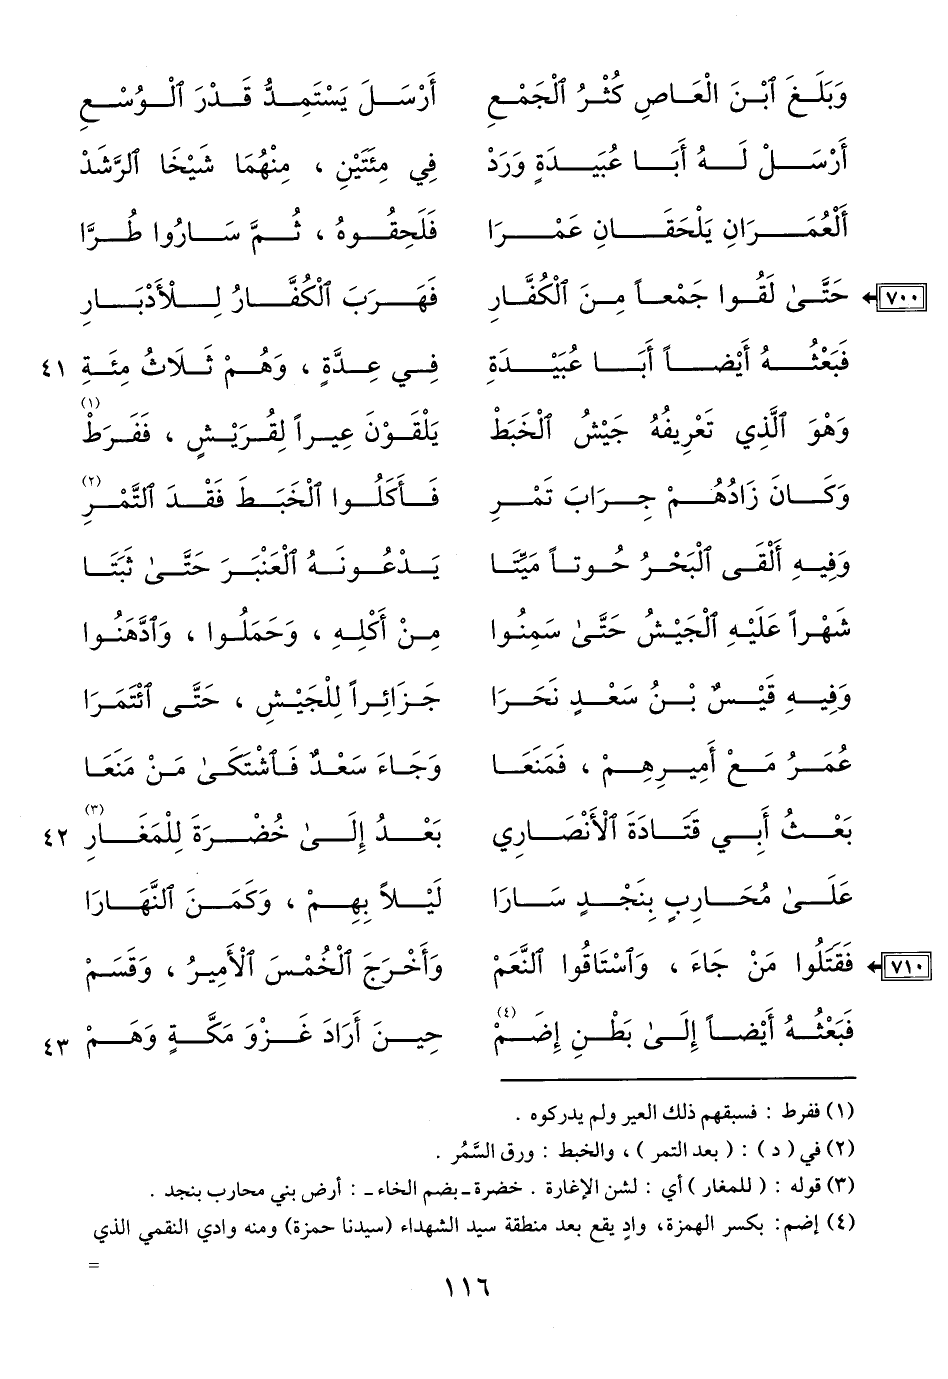 وَبَلَغَ ٱبْنَ الْعَاصِ كُثْرُ ٱلْجَمْعِ أَرْسَلَ يَسْتَمِدُّ قَدْرَ ٱلْوُسْعِ
أَرْسَلْ لَهُ أَبَا عُبَيْدَةٍ وَرَدْ فِي مِئَتَيْنِ ، مِنْهُمَا شَيْخَا ٱلرَّشَدْ
أَلْعُمَرَانِ يَلْحَقَانِ عَمْرَا فَلَحِقُوهُ ، ثُمَّ سَارُوا طُرَّا
٧٠٠ حَتَّىٰ لَقُوا جَمْعاً مِنَ ٱلْكُفَّارِ فَهَرَبَ ٱلْكُفَّارُ لِلْأَدْبَارِ
فَبَعْثُهُ أَيْضاً أَبَا عُبَيْدَةِ فِي عِدَّةٍ ، وَهُمْ ثَلَاثُ مِئَةِ ٤١
وَهْوَ ٱلَّذِي تَعْرِيفُهُ جَيْشُ ٱلْخَبَطْ يَلْقَوْنَ عِيراً لِقُرَيْشٍ ، فَفَرَطْ (١)
وَكَانَ زَادُهُمْ جِرَابَ تَمْرِ فَأَكَلُوا ٱلْخَبَطَ فَقْدَ ٱلتَّمْرِ (٢)
وَفِيهِ أَلْقَى ٱلْبَحْرُ حُوتاً مَيِّتَا يَدْعُونَهُ ٱلْعَنْبَرَ حَتَّىٰ ثَبَتَا
شَهْراً عَلَيْهِ ٱلْجَيْشُ حَتَّىٰ سَمِنُوا مِنْ أَكْلِهِ ، وَحَمَلُوا ، وَٱدَّهَنُوا
وَفِيهِ قَيْسٌ بْنُ سَعْدٍ نَحَرَا جَزَائِراً لِلْجَيْشِ ، حَتَّى ٱئْتَمَرَا
عُمَرُ مَعْ أَمِيرِهِمْ ، فَمَنَعَا وَجَاءَ سَعْدٌ فَٱشْتَكَىٰ مَنْ مَنَعَا
بَعْثُ أَبِي قَتَادَةَ ٱلْأَنْصَارِي بَعْدُ إِلَىٰ خُضْرَةَ لِلْمَغَارِ (٣) ٤٢
عَلَىٰ مُحَارِبٍ بِنَجْدٍ سَارَا لَيْلاً بِهِمْ ، وَكَمَنَ ٱلنَّهَارَا
٧١٠ فَقَتَلُوا مَنْ جَاءَ ، وَٱسْتَاقُوا ٱلنَّعَمْ وَأَخْرَجَ ٱلْخُمْسَ ٱلْأَمِيرُ ، وَقَسَمْ
فَبَعْثُهُ أَيْضاً إِلَىٰ بَطْنِ إِضَمْ (٤) حِينَ أَرَادَ غَزْوَ مَكَّةٍ وَهَمْ ٤٣
(١) ففرط : فسبقهم ذلك العير ولم يدركوه .
(٢) في ( د ) : ( بعد التمر ) ، والخبط : ورق السَّمُر .
(٣) قوله : ( للمغار ) أي : لشن الإغارة . خضرة ـ بضم الخاء ـ : أرض بني محارب بنجد .
(٤) إضم : بكسر الهمزة، وادٍ يقع بعد منطقة سيد الشهداء (سيدنا حمزة) ومنه وادي النقمي الذي
=
١١٦